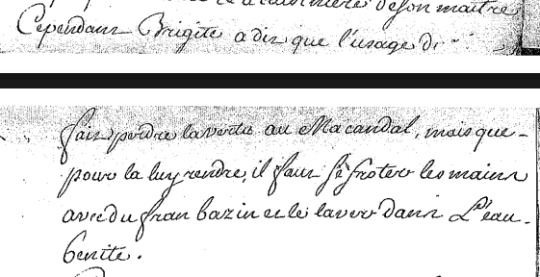 a cuisiniere de son maitre
Cependant Brigite a dit que l'usage di
fait perdre la vertu au Macandal, mais que
pour la luy rendre, il faut se froter les mains
avec du fran bazin et le laver dans L'eau
benite.